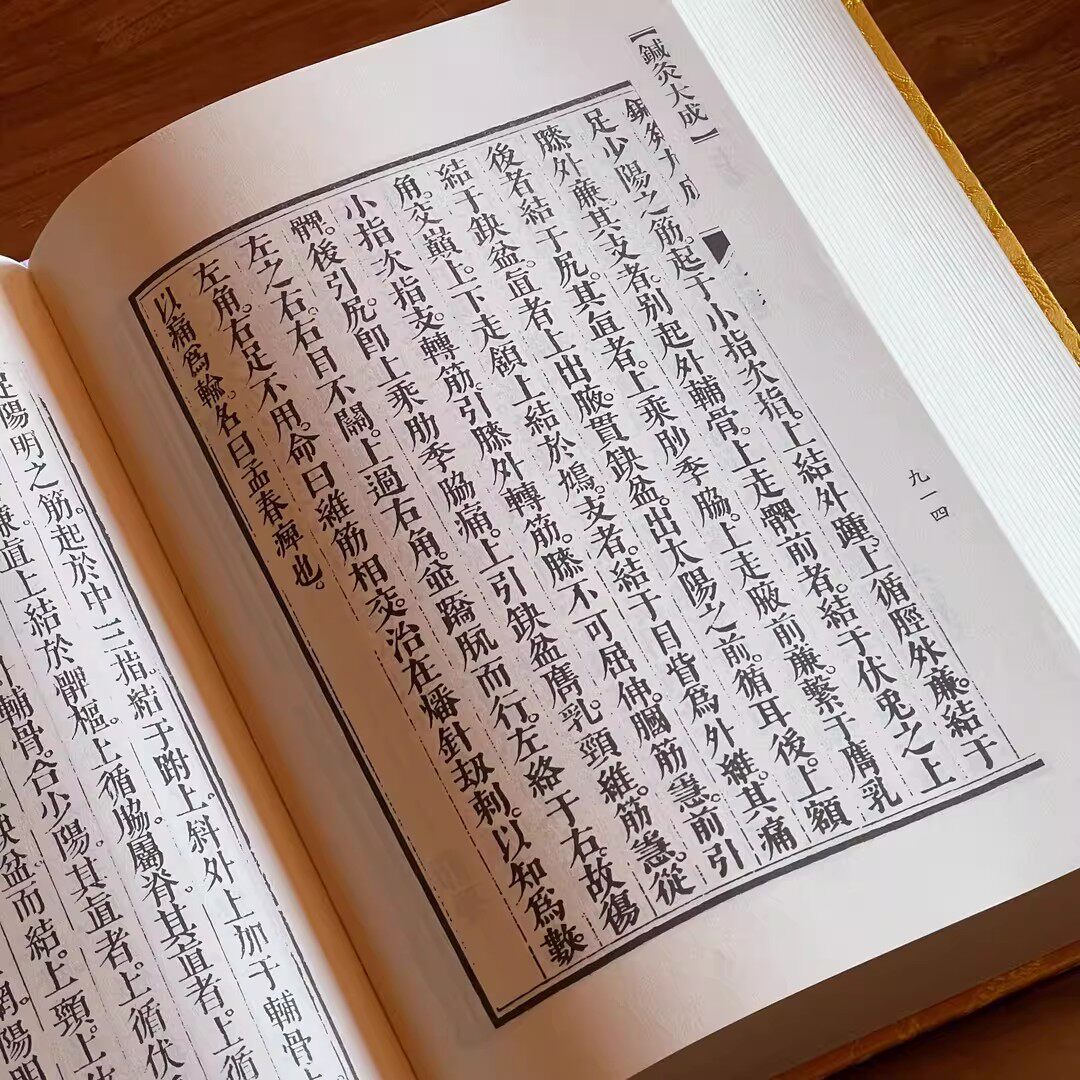 【鍼灸大成】
足少陽之筋。起于小指次指。上結外踵。上循脛外廉。結于
膝外廉。其支者别起外輔骨。上走髀前者。結于伏兔之上
後者結于尻。其直者。上乘䏚季脇。上走腋前廉。繫于膺乳
結于缺盆。直者上出腋。貫缺盆。出太陽之前。循耳後。上額
角。交巔上。下走頷。上結於鳩。支者。結于目眥爲外維。其痛
小指次指。支轉筋。引膝外轉筋。膝不可屈伸。膕筋急。前引
髀。後引尻。卽上乘肋季脇痛。上引缺盆膺乳頸維。筋急。從
左之右。右目不開。上過右角。並蹻脈而行。左絡于右。故傷
左角。右足不用。命曰維筋相交。治在燔針刼刺。以知爲數
以痛爲輸。名曰孟春痺也。
九一四
陽明之筋。起於中三指。結于跗上。斜外上加于輔骨
廉。直上結於髀樞。上循脇屬脊。其直者。上循
輔骨。合少陽。其直者。上循伏
缺盆而結。上頸。上
陽明